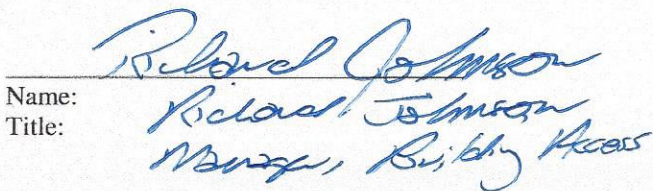 Richard Johnson
Name: Richard Johnson
Title: Manager, Building Access